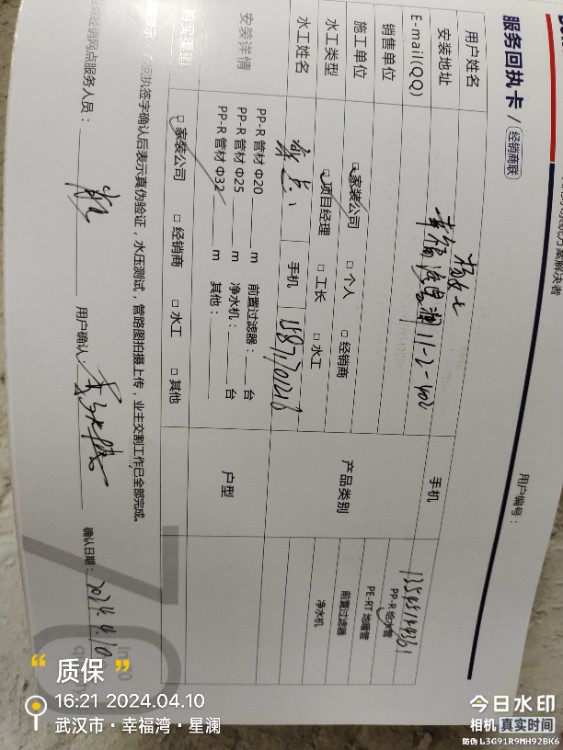 服务回执卡 / 经销商联
用户编号：
用户姓名 杨女士 手机 13545194361
安装地址 幸福湾星澜 11-2-402
E-mail(QQ)
销售单位
施工单位 家装公司 □ 个人 □ 经销商
产品类别 PP-R 给水管
PE-RT 地暖管
前置过滤器
净水机
水工类型 项目经理 □ 工长 □ 水工
水工姓名 手机
安装详情 PP-R 管材 Φ20 m 前置过滤器： 台
PP-R 管材 Φ25 m 净水机： 台
PP-R 管材 Φ32 m 其他：
户型
购买渠道 □ 家装公司 □ 经销商 □ 水工 □ 其他
回执签字确认后表示真伪验证，水压测试，管路图拍摄上传，业主交割工作已全部完成。
经销网点服务人员： 用户确认： 确认日期： 2024.4.10
“ 质保 ”
16:21 2024.04.10
武汉市·幸福湾·星澜
今日水印
相机 真实时间
防伪 L3G91R9MH92BK6